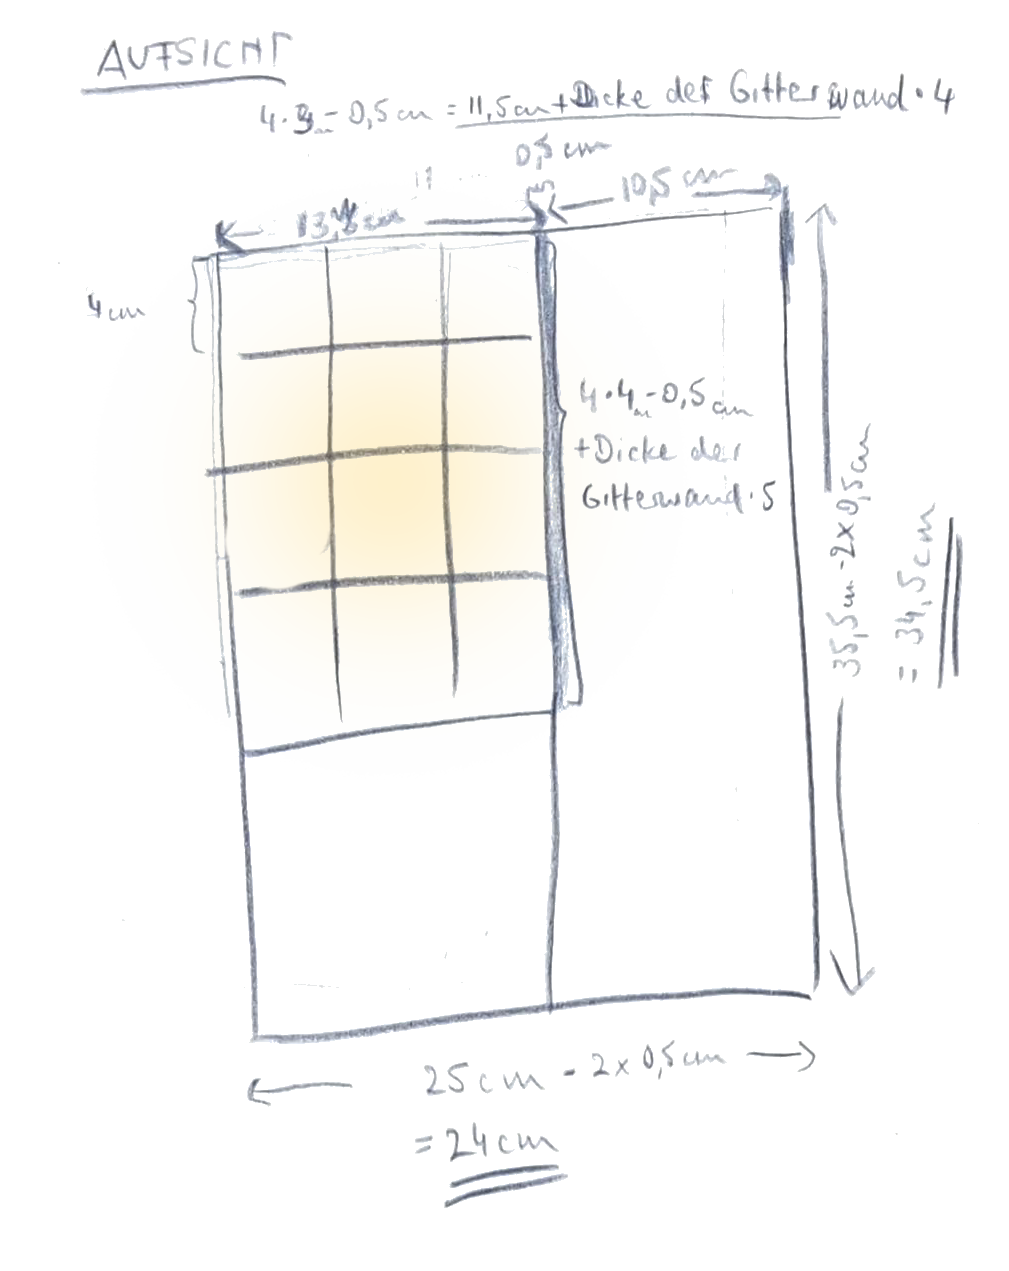 AUFSICHT
4·3cm - 0,5cm = 11,5cm + Dicke der Gitterwand · 4
0,5 cm
10,5 cm
4cm
4·4cm - 0,5cm
+ Dicke der
Gitterwand · 5
35,5cm - 2x0,5cm
= 34,5cm
25cm - 2x0,5cm
= 24cm